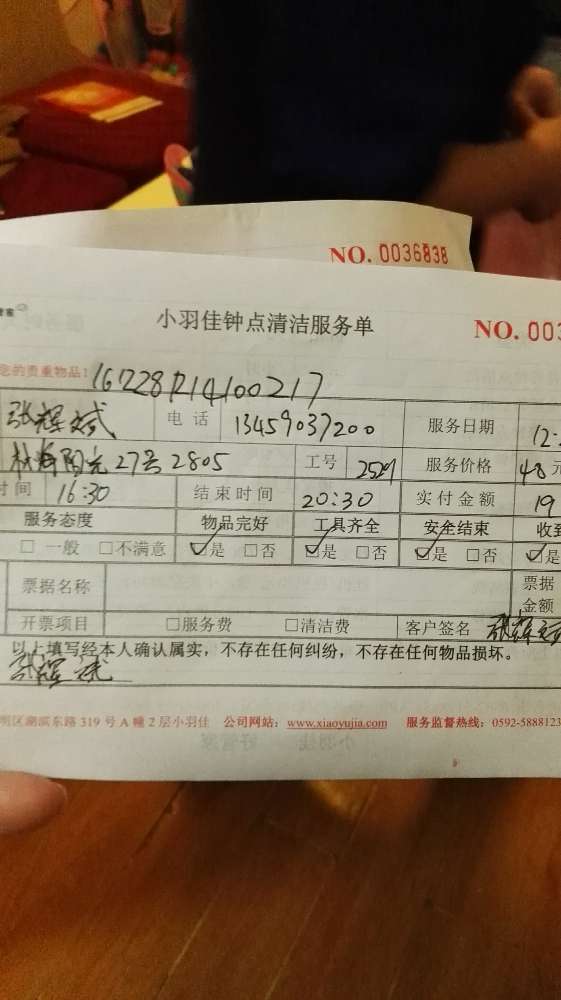 NO. 0036838
小羽佳钟点清洁服务单 NO. 003
您的贵重物品: 162281214100217
张辉斌 电话 13459037200 服务日期 12:
阳光27号2805 工号 2529 服务价格 48元
时间 16:30 结束时间 20:30 实付金额 19
服务态度 物品完好 工具齐全 安全结束 收到
□一般 □不满意 ☑是 □否 ☑是 □否 ☑是 □否 ☑是
票据名称 票据金额
开票项目 □服务费 □清洁费 客户签名 张辉斌
以上填写经本人确认属实，不存在任何纠纷，不存在任何物品损坏。
张辉斌
明区湖滨东路 319 号 A 幢 2 层小羽佳 公司网站：www.xiaoyujia.com 服务监督热线：0592-5888123